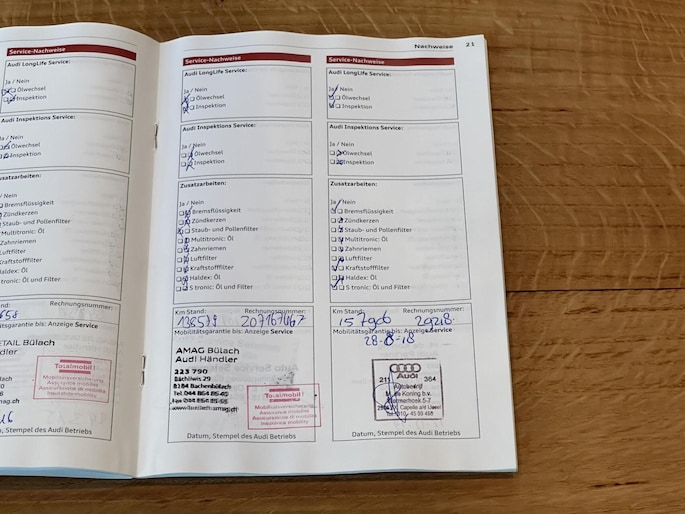 Nachweise 21
Service-Nachweise
Audi LongLife Service:
Ja / Nein
Ölwechsel
Inspektion
Audi Inspektions Service:
/ Nein
Ölwechsel
Inspektion
Zusatzarbeiten:
/ Nein
Bremsflüssigkeit
Zündkerzen
Staub- und Pollenfilter
Multitronic: Öl
Zahnriemen
Luftfilter
Kraftstofffilter
Haldex: Öl
S tronic: Öl und Filter
Stempel des Audi Betriebs
Service-Nachweise
Audi LongLife Service:
Ja / Nein
Ölwechsel
Inspektion
Audi Inspektions Service:
Ja / Nein
Ölwechsel
Inspektion
Zusatzarbeiten:
Ja / Nein
Bremsflüssigkeit
Zündkerzen
Staub- und Pollenfilter
Multitronic: Öl
Zahnriemen
Luftfilter
Kraftstofffilter
Haldex: Öl
S tronic: Öl und Filter
Km Stand: Rechnungsnummer:
Mobilitätsgarantie bis: Anzeige Service
AMAG Bülach
Audi Händler
223 790
8184 Bachenbülach
Totalmobil!
Datum, Stempel des Audi Betriebs
Service-Nachweise
Audi LongLife Service:
Ja / Nein
Ölwechsel
Inspektion
Audi Inspektions Service:
Ja / Nein
Ölwechsel
Inspektion
Zusatzarbeiten:
Ja / Nein
Bremsflüssigkeit
Zündkerzen
Staub- und Pollenfilter
Multitronic: Öl
Zahnriemen
Luftfilter
Kraftstofffilter
Haldex: Öl
S tronic: Öl und Filter
Km Stand: Rechnungsnummer:
157906 29218
Mobilitätsgarantie bis: Anzeige Service
28-8-18
Audi
211 364
Datum, Stempel des Audi Betriebs